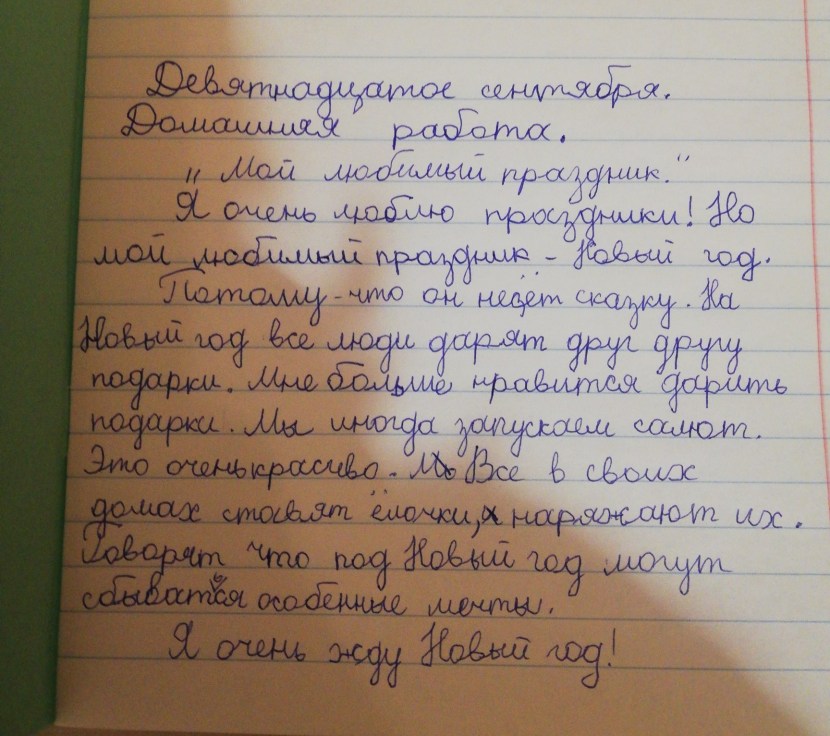 Девятнадцатое сентября.
Домашняя работа.
„Мой любимый праздник."
Я очень люблю праздники! Но
мой любимый праздник - Новый год.
Потому-что он несёт сказку. На
Новый год все люди дарят друг другу
подарки. Мне больше нравится дарить
подарки. Мы иногда запускаем салют.
Это очень красиво. Все в своих
домах ставят ёлочки, наряжают их.
Говорят что под Новый год могут
сбываться особенные мечты.
Я очень жду Новый год!